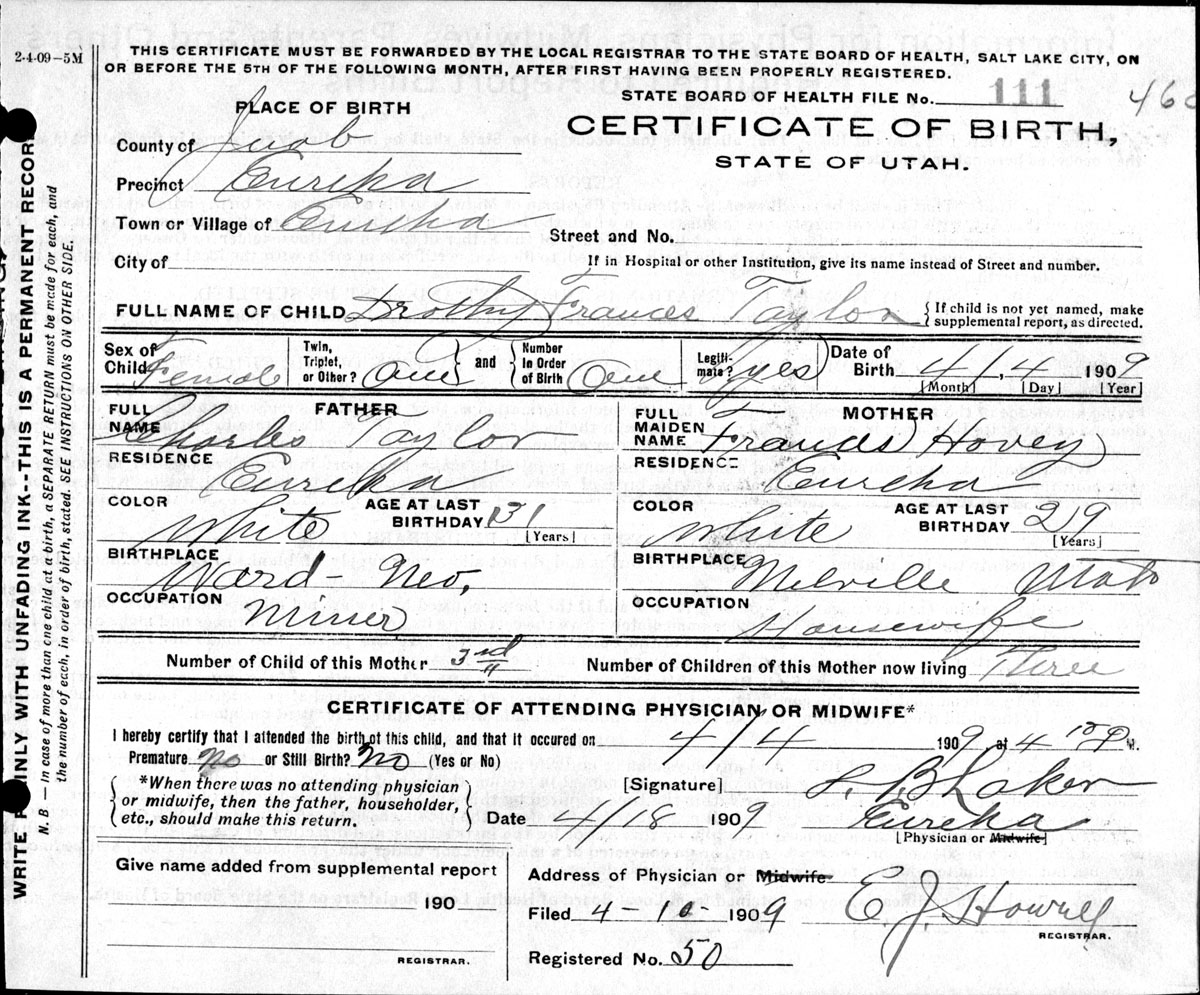 2-4-09-5M
THIS CERTIFICATE MUST BE FORWARDED BY THE LOCAL REGISTRAR TO THE STATE BOARD OF HEALTH, SALT LAKE CITY, ON
OR BEFORE THE 5TH OF THE FOLLOWING MONTH, AFTER FIRST HAVING BEEN PROPERLY REGISTERED.
STATE BOARD OF HEALTH FILE No. 111
PLACE OF BIRTH
CERTIFICATE OF BIRTH,
STATE OF UTAH.
County of Juab
Precinct Eureka
Town or Village of Eureka
Street and No.
City of
If in Hospital or other Institution, give its name instead of Street and number.
FULL NAME OF CHILD Drothy Frances Taylor
{ If child is not yet named, make
supplemental report, as directed.
Sex of Child Female
Twin, Triplet, or Other? One
and
Number in Order of Birth One
Legiti-mate? yes
Date of Birth 4/ 4 1909
[Month] [Day] [Year]
FATHER
FULL NAME Charles Taylor
RESIDENCE Eureka
COLOR White
AGE AT LAST BIRTHDAY 31
[Years]
BIRTHPLACE Ward - Nev,
OCCUPATION Miner
MOTHER
FULL MAIDEN NAME Frances Hovey
RESIDENCE Eureka
COLOR White
AGE AT LAST BIRTHDAY 29
[Years]
BIRTHPLACE Melville Utah
OCCUPATION Housewife
Number of Child of this Mother 3rd
Number of Children of this Mother now living Three
CERTIFICATE OF ATTENDING PHYSICIAN OR MIDWIFE*
I hereby certify that I attended the birth of this child, and that it occured on 4/4 1909 at 4 15 P M.
Premature No or Still Birth? No (Yes or No)
*When there was no attending physician
or midwife, then the father, householder,
etc., should make this return.
[Signature]
Date 4/18 1909
Eureka
[Physician or Midwife]
Give name added from supplemental report
190
REGISTRAR.
Address of Physician or Midwife
Filed 4 - 1909
E. J. Howell
REGISTRAR.
Registered No. 50
WRITE PLAINLY WITH UNFADING INK--THIS IS A PERMANENT RECORD
N. B. — in case of more than one child at a birth, a SEPARATE RETURN must be made for each, and
the number of each, in order of birth, stated. SEE INSTRUCTIONS ON OTHER SIDE.